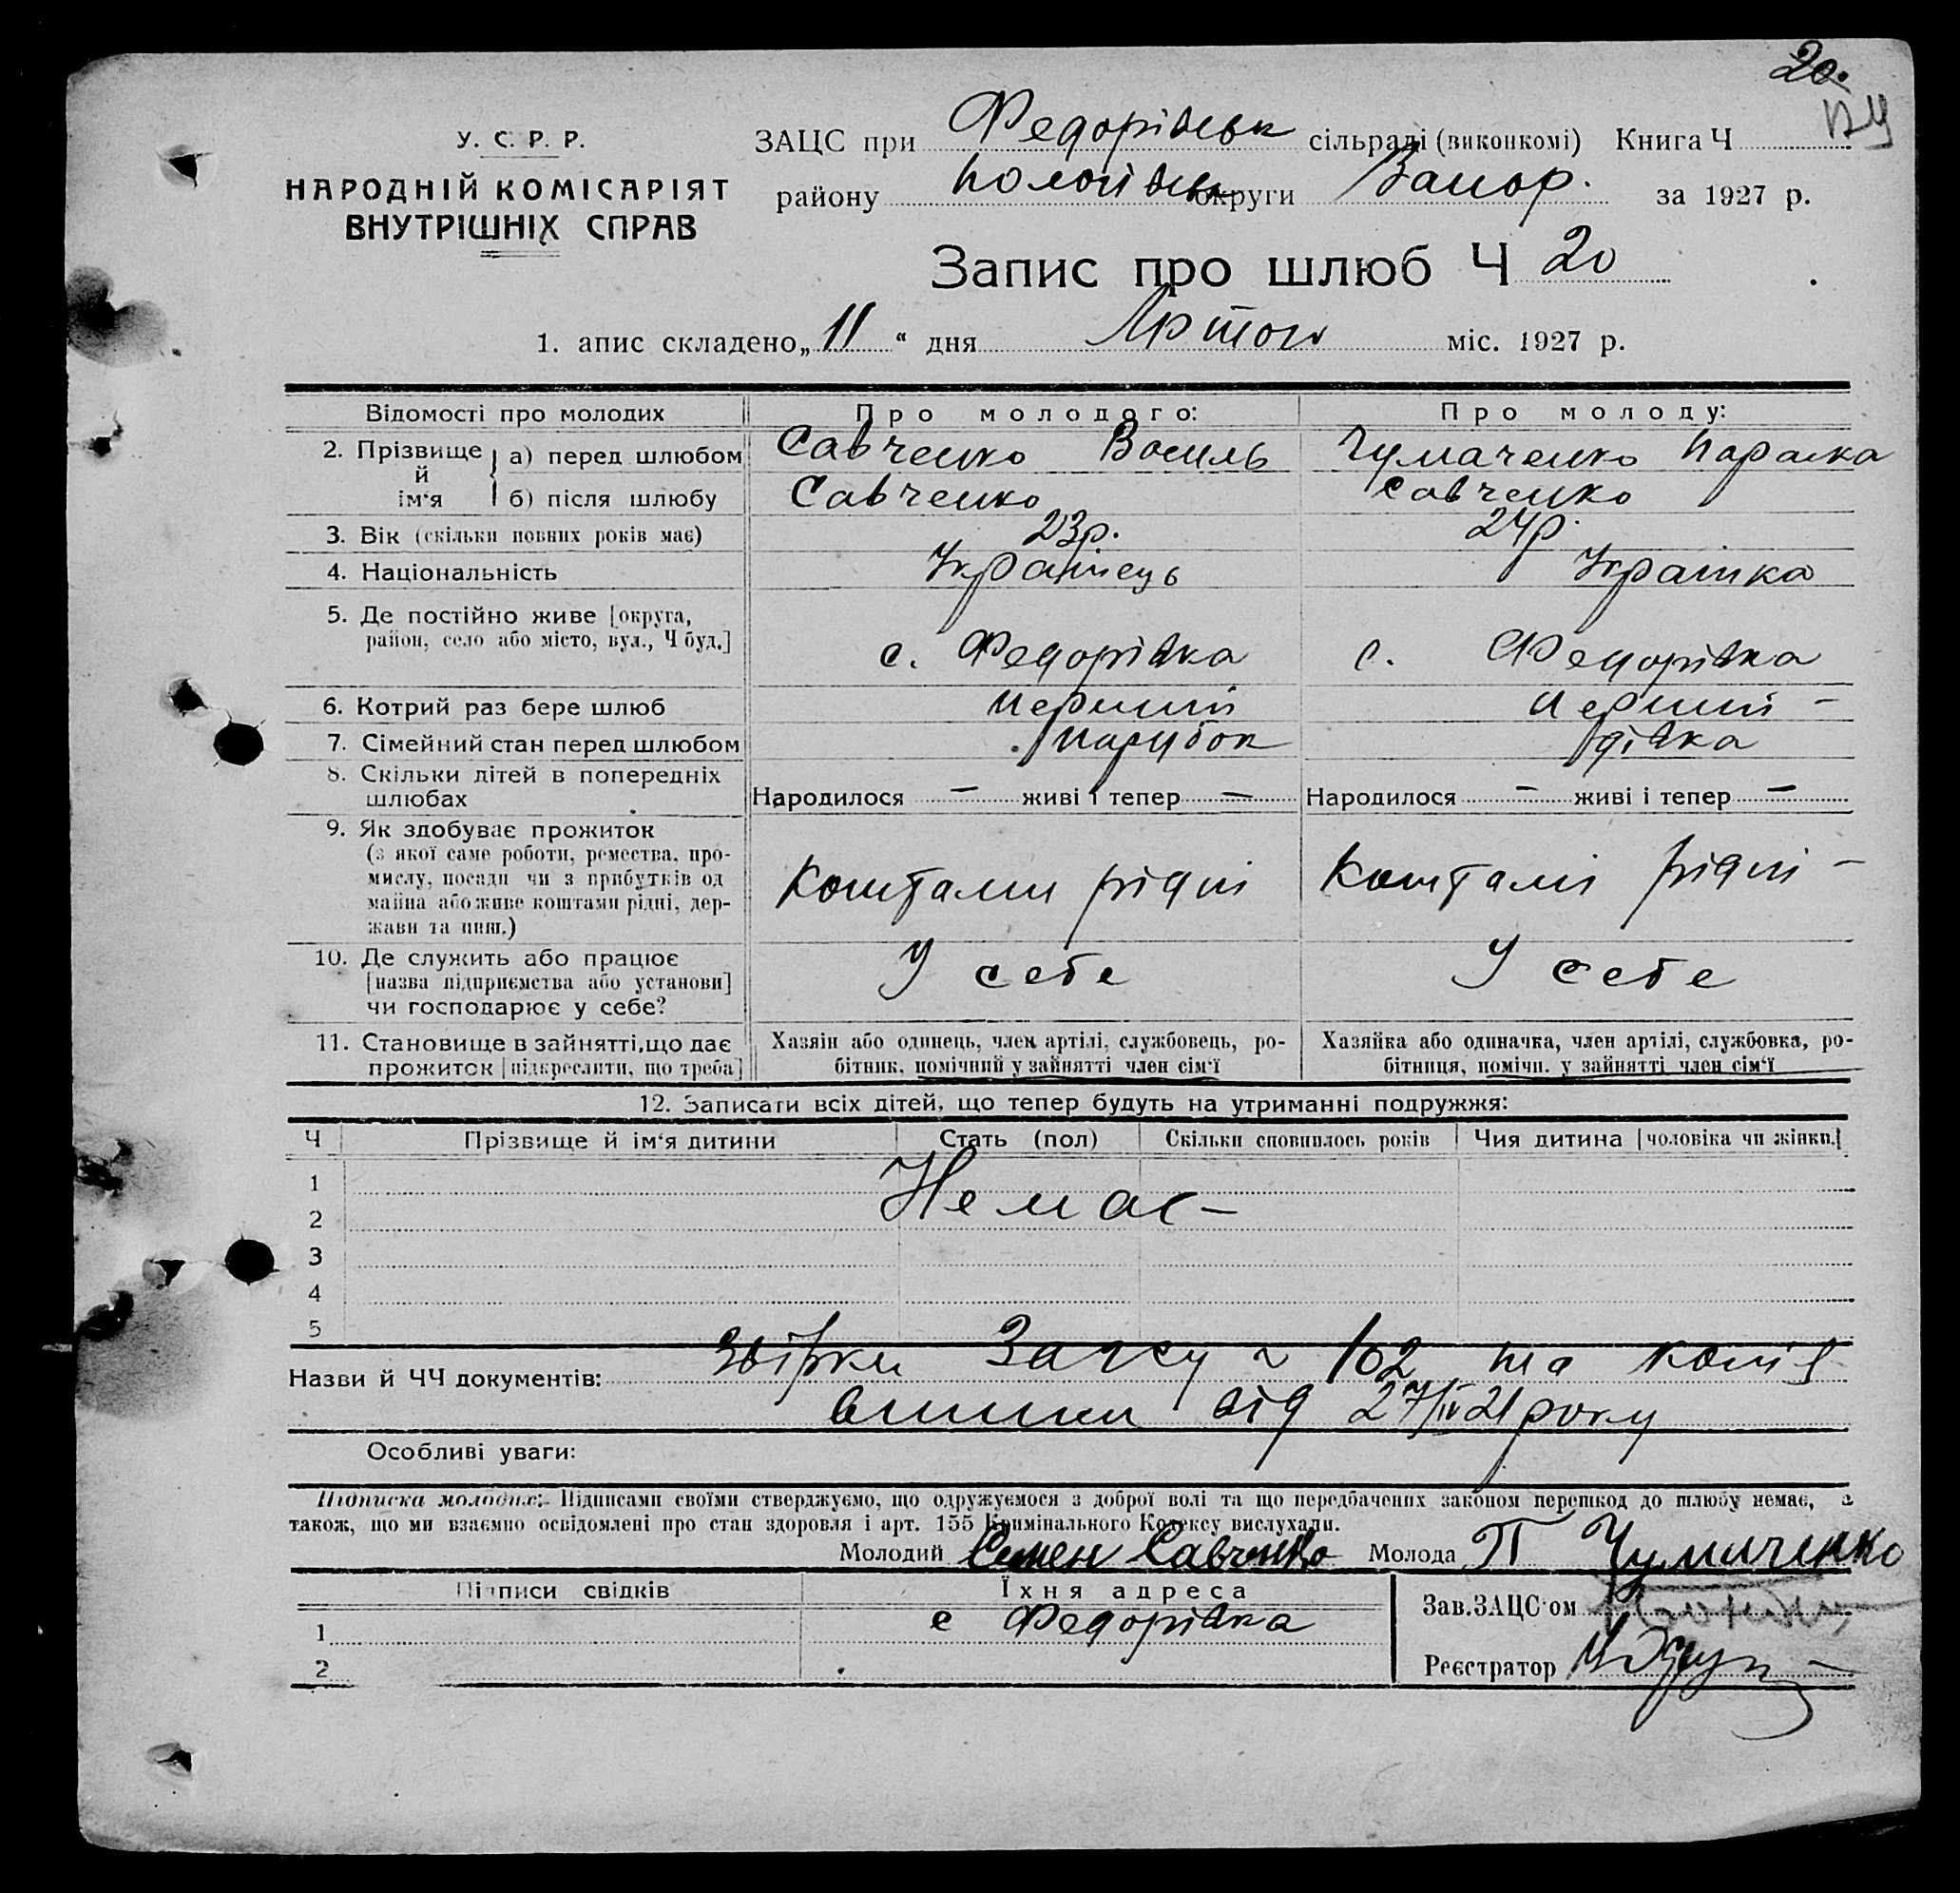 20.
У. С. Р. Р.
НАРОДНІЙ КОМІСАРІЯТ
ВНУТРІШНІХ СПРАВ
ЗАЦС при Федорівськ сільраді (виконкомі) Книга Ч
району Пологівськ округи Запор. за 1927 р.
Запис про шлюб Ч 20
1. апис складено „ 11 “ дня Лютого міс. 1927 р.
Відомості про молодих Про молодого: Про молоду:
2. Прізвище й ім‘я а) перед шлюбом Савченко Василь Чумаченко Параска
б) після шлюбу Савченко Савченко
3. Вік (скільки повних років має) 23р. 24р.
4. Національність Українець Українка
5. Де постійно живе [округа,
район, село або місто, вул., Ч буд.] с. Федорівка с. Федорівка
6. Котрий раз бере шлюб перший перший –
7. Сімейний стан перед шлюбом парубок дівка
8. Скільки дітей в попередніх
шлюбах Народилося – живі і тепер – Народилося – живі і тепер –
9. Як здобуває прожиток
(з якої саме роботи, ремества, про-
мислу, посади чи з прибутків од
майна або живе коштами рідні, дер-
жави та инш.) Коштами рідні Коштамі рідні –
10. Де служить або працює
[назва підприємства або установи]
чи господарює у себе? У себе У себе
11. Становище в зайнятті, що дає
прожиток [підкреслити, що треба]
Хазяїн або одинець, член артілі, службовець, ро-
бітник, помічний у зайнятті член сім‘ї
Хазяйка або одиначка, член артілі, службовка, ро-
бітниця, помічн. у зайнятті член сім‘ї
12. Записати всіх дітей, що тепер будуть на утриманні подружжя:
Ч Прізвище й ім‘я дитини Стать (пол) Скільки сповнилось років Чия дитина [чоловіка чи жінки.]
1
2 Немає –
3
4
5
Назви й ЧЧ документів: Загсу 102 та копія
від 27/IV 21 року
Особливі уваги:
Підписка молодих: Підписами своїми стверджуємо, що одружуємося з доброї волі та що передбачених законом перешкод до шлюбу немає, а
також, що ми взаємно освідомлені про стан здоровля і арт. 155 Кримінального Кодексу вислухали.
Молодий Семен Савченко Молода П Чумиченко
Підписи свідків Їхня адреса
1 с Федорівка
2
Зав. ЗАЦС‘ом
Реєстратор